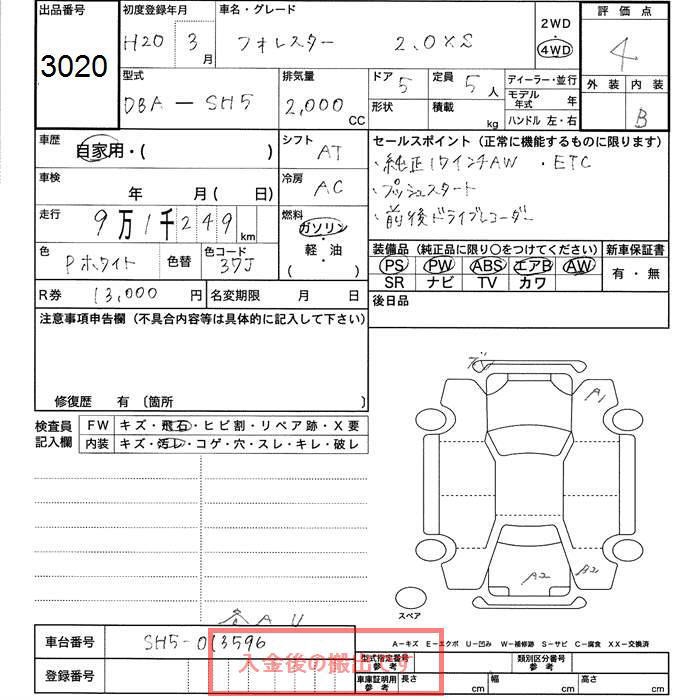 出品番号 初度登録年月 車名・グレード 2WD 評価点
3020 H20 3月 フォレスター 2.0XS 4WD 4
型式 排気量 ドア 5 定員 5人 ディーラー・並行 外装 内装
DBA-SH5 2,000 CC 形状 積載 kg モデル年式 年 B
ハンドル 左・右
車歴 自家用・( ) シフト AT セールスポイント(正常に機能するものに限ります)
・純正17インチAW ・ETC
車検 年 月(日) 冷房 AC ・プッシュスタート
走行 9万1千249km 燃料 ガソリン・軽・油( ) ・前後ドライブレコーダー
色 Pホワイト 色替 色コード 37J 装備品(純正品に限り○をつけてください) 新車保証書
PS PW ABS エアB AW 有・無
SR ナビ TV カワ
R券 13,000円 名変期限 月 日 後日品
注意事項申告欄(不具合内容等は具体的に記入して下さい)
修復歴 有 〔箇所
検査員記入欄 FW キズ・飛石・ヒビ割・リペア跡・X要
内装 キズ・汚レ・コゲ・穴・スレ・キレ・破レ
A1
A2 B2
スペア
AU
車台番号 SH5-013596
A-キズ E-エクボ U-凹み W-補修跡 S-サビ C-腐食 XX-交換済
入金後の搬出です
型式指定番号参考 類別区分番号参考
登録番号 車庫証明用参考 長さ cm 幅 cm 高さ cm